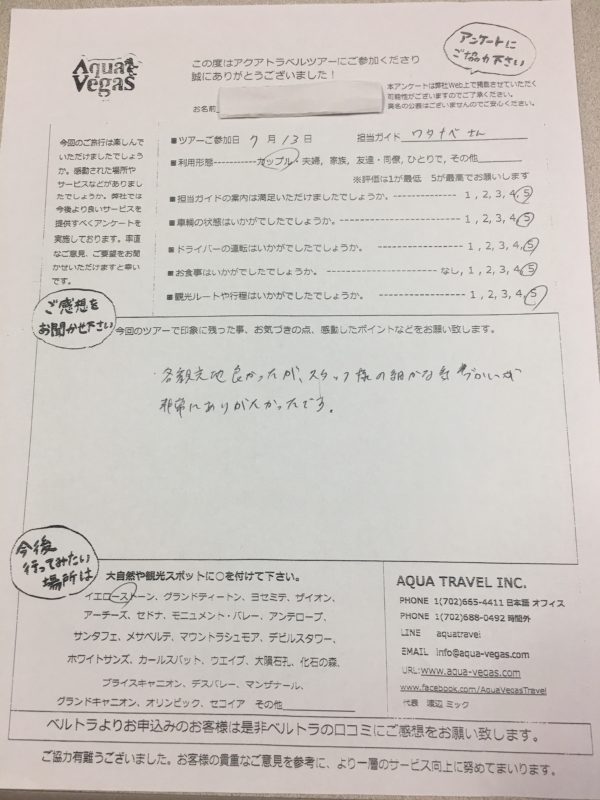 Aqua Vegas
この度はアクアトラベルツアーにご参加くださり
誠にありがとうございました！
アンケートに
ご協力下さい
お名前
本アンケートは弊社Web上で掲載させていただく
可能性がございますのでご了承ください。
真名の公表はございませんのでご安心ください。
今回のご旅行は楽しんで
いただけましたでしょう
か。感動された場所や
サービスなどがありまし
たでしょうか。弊社では
今後より良いサービスを
提供すべくアンケートを
実施しております。率直
なご意見、ご要望をお聞
かせいただけますと幸い
です。
■ツアーご参加日 7月13日 担当ガイド ワタナベさん
■利用形態-----------カップル・夫婦, 家族, 友達・同僚, ひとりで, その他
※評価は1が最低 5が最高でお願いします
■担当ガイドの案内は満足いただけましたでしょうか。---------------- 1, 2, 3, 4, 5
■車輛の状態はいかがでしたでしょうか。---------------- 1, 2, 3, 4, 5
■ドライバーの運転はいかがでしたでしょうか。---------------- 1, 2, 3, 4, 5
■お食事はいかがでしたでしょうか。---------------- なし, 1, 2, 3, 4, 5
■観光ルートや行程はいかがでしたでしょうか。---------------- 1, 2, 3, 4, 5
ご感想を
お聞かせ下さい
今回のツアーで印象に残った事、お気づきの点、感動したポイントなどをお願い致します。
各観光地良かったが、スタッフ様の細かな気づかいが
非常にありがたかったです。
今後
行ってみたい
場所は
大自然や観光スポットに○を付けて下さい。
イエローストーン、グランドティートン、ヨセミテ、ザイオン、
アーチーズ、セドナ、モニュメント・バレー、アンテロープ、
サンタフェ、メサベルテ、マウントラシュモア、デビルスタワー、
ホワイトサンズ、カールスバット、ウエイブ、大隕石孔、化石の森、
ブライスキャニオン、デスバレー、マンザナール、
グランドキャニオン、オリンピック、セコイア その他
AQUA TRAVEL INC.
PHONE 1(702)665-4411 日本語 オフィス
PHONE 1(702)688-0492 時間外
LINE aquatravel
EMAIL info@aqua-vegas.com
URL:www.aqua-vegas.com
www.facebook.com/AquaVegasTravel
代表 渡辺 ミック
ベルトラよりお申込みのお客様は是非ベルトラの口コミにご感想をお願い致します。
ご協力有難うございました。お客様の貴重なご意見を参考に、より一層のサービス向上に努めてまいります。